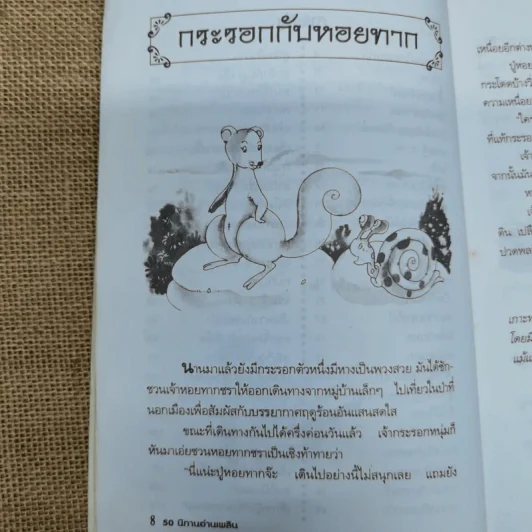 กระรอกกับหอยทาก
นานมาแล้วยังมีกระรอกตัวหนึ่งมีหางเป็นพวงสวย มันได้ชัก-
ชวนเจ้าหอยทากชราให้ออกเดินทางจากหมู่บ้านเล็กๆ ไปเที่ยวในป่าที่
นอกเมืองเพื่อสัมผัสกับบรรยากาศฤดูร้อนอันแสนสดใส
ขณะที่เดินทางกันไปได้ครึ่งค่อนวันแล้ว เจ้ากระรอกหนุ่มก็
หันมาเอ่ยชวนหอยทากชราเป็นเชิงท้าทายว่า
"นี่แน่ะปู่หอยทากจ๊ะ เดินไปอย่างนี้ไม่สนุกเลย แถมยัง
8 50 นิทานอ่านเพลิน
เหนื่อยอีกต่าง
ปู่หอย
กระโดดบ้างวิ่
ความเหนื่อย
ที่แท้กระรอ
เจ้า
จากนั้นมัน
ดิน เปลี่
โดยมี